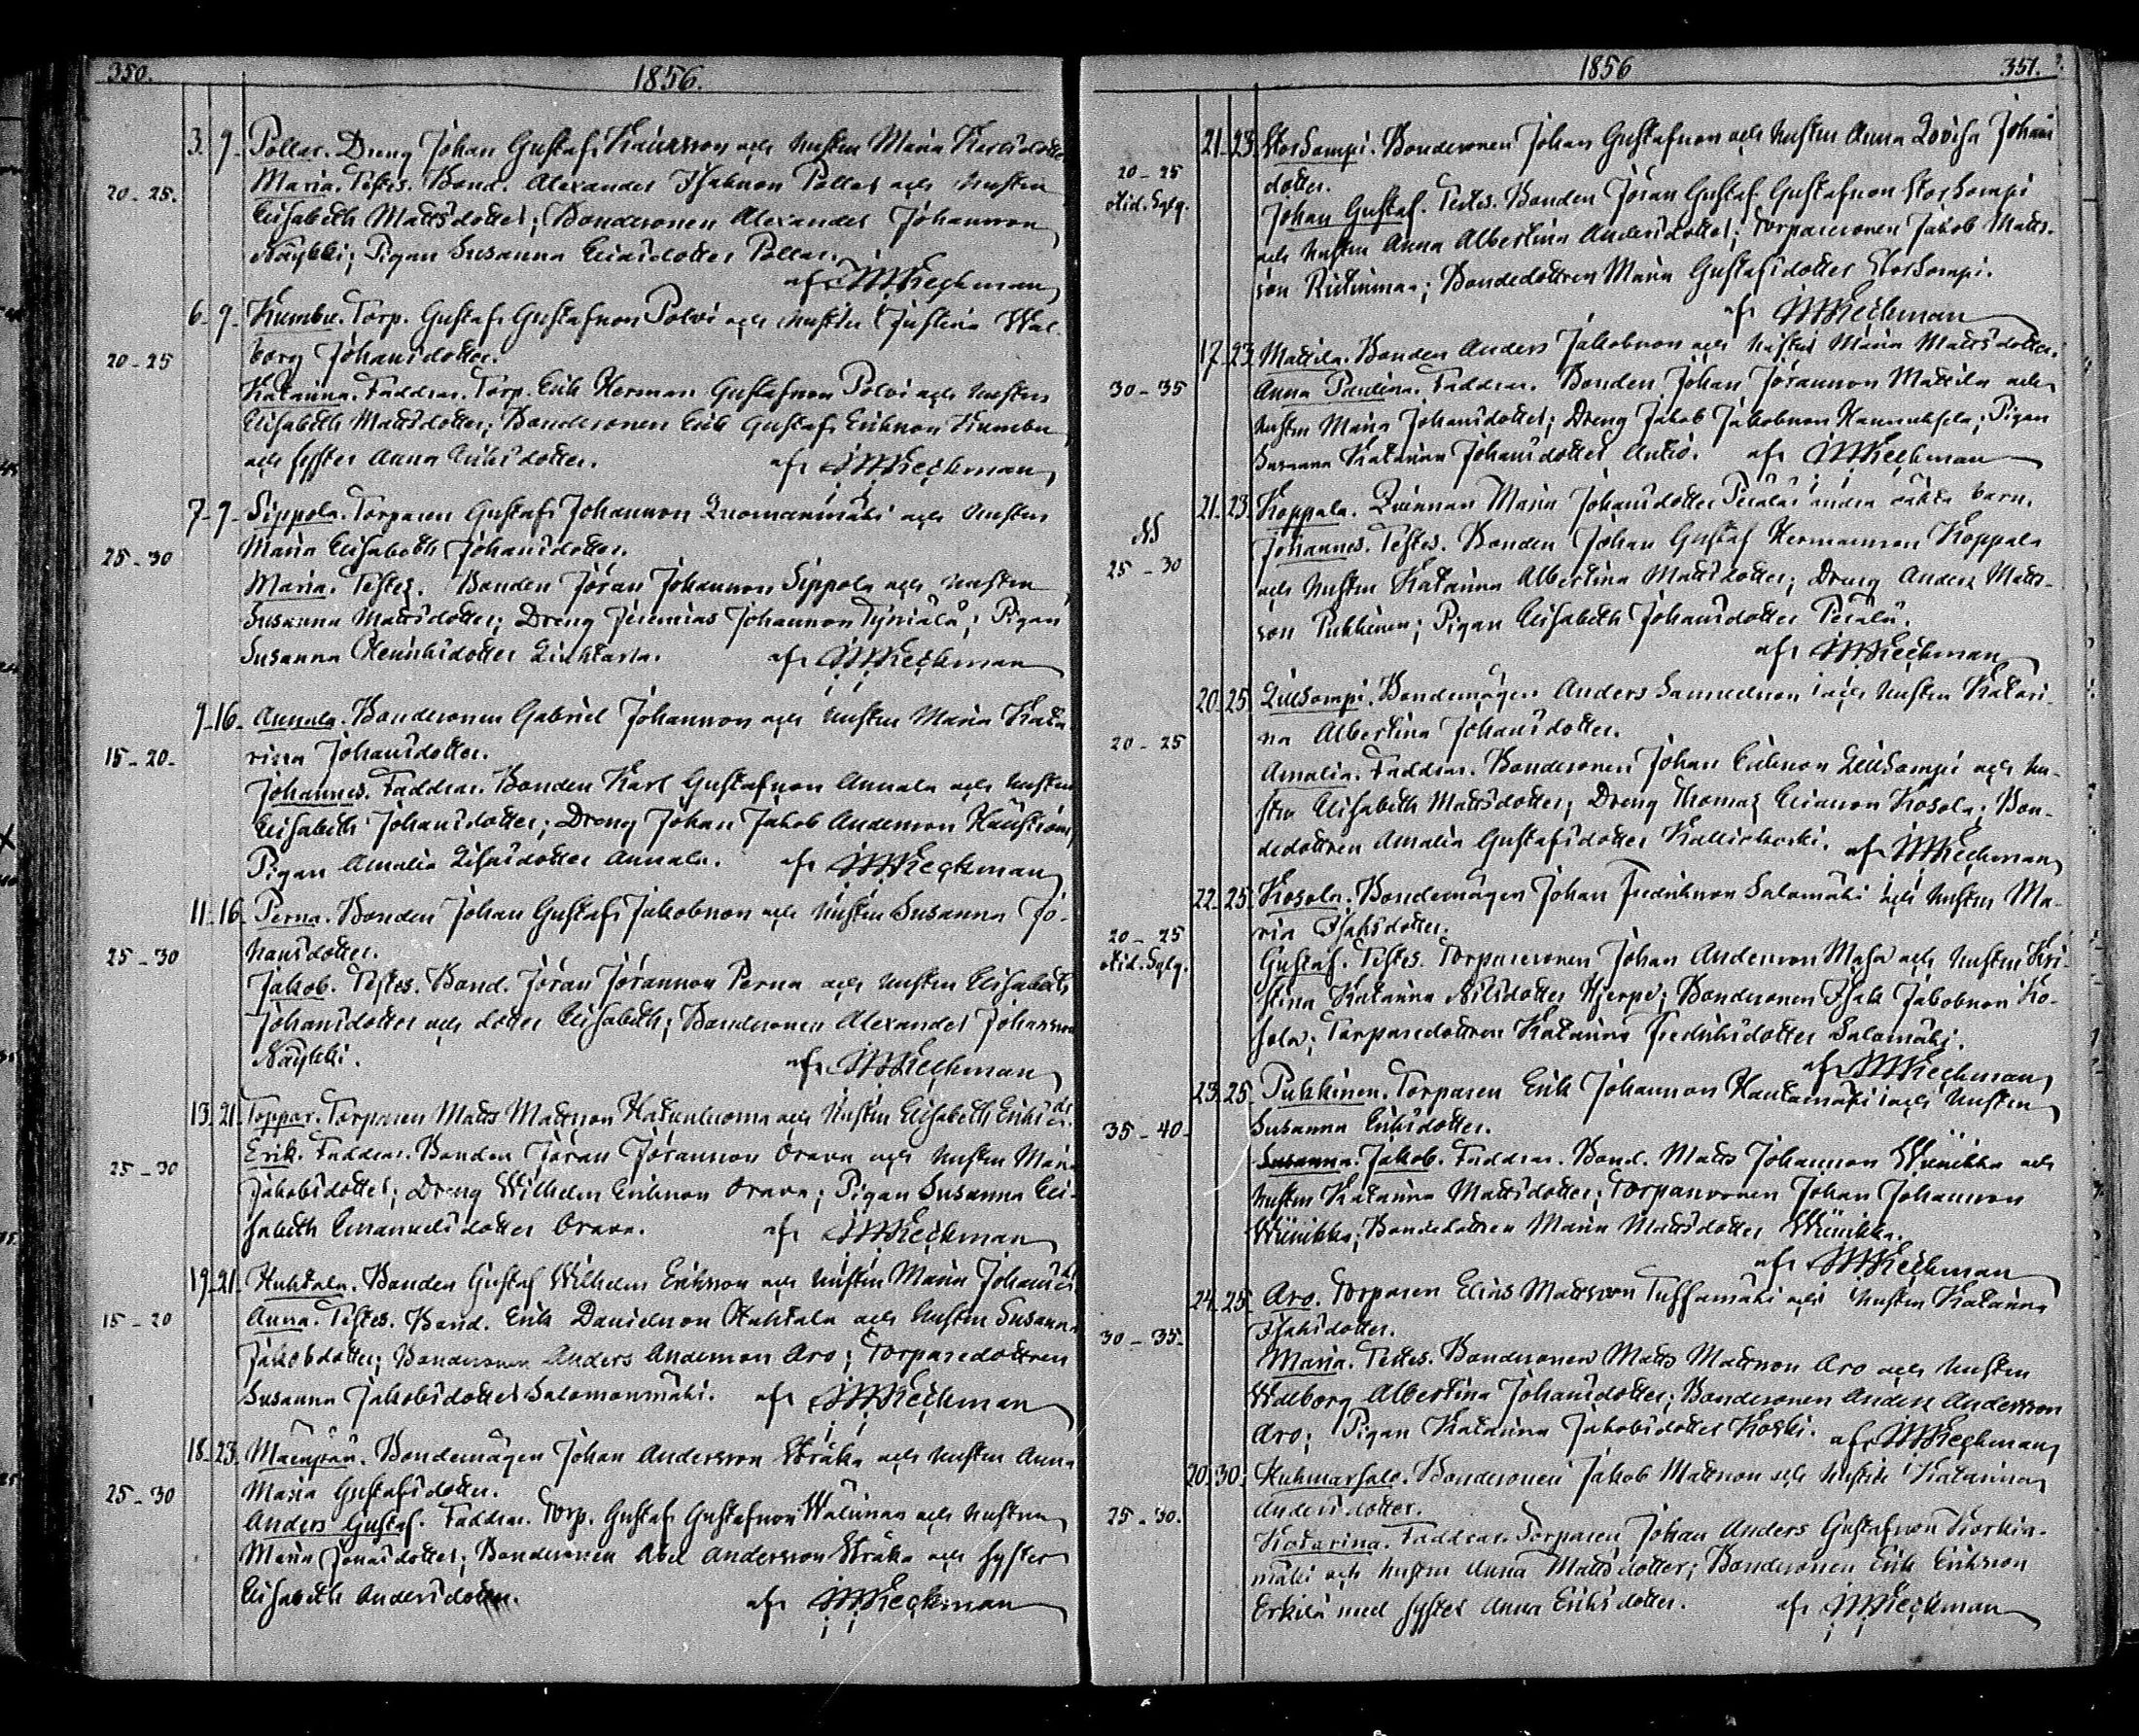 350.
1856.
3. 9. Pollar. Dreng Johan Gustaf Kaursson och hustru Maria Karlsdotter
20-25. Maria. Testes. Bond. Alexander Isaksson Pollar och hustru
Elisabeth Mattsdotter; Bondesonen Alexander Johansson
Näykki; Pigan Susanna Eliasdotter Pollar.
af Reckman
6. 9. Kumbu. Torp. Gustaf Gustafsson Polvi och hustru Justina Wal-
20-25 borg Johansdotter.
Katarina. Faddrar. Torp. Erik Herman Gustafsson Polvi och hustru
Elisabeth Mattsdotter; Bondesonen Erik Gustaf Eriksson Kumbu
och syster Anna Eriksdotter. af Reckman
7. 9. Sippola. Torparen Gustaf Johansson Luomanmäki och hustru
25-30 Maria Elisabeth Johansdotter.
Maria. Testes. Bonden Jöran Johansson Sippola och hustru
Susanna Mattsdotter; Dreng Jeremias Johansson Tyriälä; Pigan
Susanna Henriksdotter af Reckman
9-16. Annala. Bondesonen Gabriel Johansson och hustru Maria Kata-
15-20. rina Johansdotter.
Johannes. Faddrar. Bonden Karl Gustafsson Annala och hustru
Elisabeth Johansdotter; Dreng Johan Jakob Andersson
Pigan Amalia Annala. af Reckman
11. 16. Perna. Bonden Johan Gustaf Jakobsson och hustru Susanna Jo-
25-30 hansdotter.
Jakob. Testes. Bond. Jöran Jöransson Perna och hustru Elisabeth
Johansdotter och dotter Elisabeth; Bondesonen Alexander Johansson
Näykki. af Reckman
13. 21. Toppar. Torparen Matts Mattsson Hatunluoma och hustru Elisabeth Eriksdr.
25-30 Erik. Faddrar. Bonden Jöran Jöransson Orava och hustru Maria
Jakobsdotter; Dreng Wilhelm Eriksson Orava; Pigan Susanna Eli-
sabeth Emanuelsdotter Orava. af Reckman
19. 21. Huhtala. Bonden Gustaf Wilhelm Eriksson och hustru Maria Johansdr.
15-20 Anna. Testes. Bond. Erik Danielsson Huhtala och hustru Susanna
Jakobsdotter; Bondesonen Anders Andersson Aro; Torparedottren
Susanna Jakobsdotter Salomonmäki. af Reckman
18. 23. Mäenpää. Bondemågen Johan Andersson Stråka och hustru Anna
25-30 Maria Gustafsdotter.
Anders Gustaf. Faddrar. Torp. Gustaf Gustafsson Walimaa och hustru
Maria Jonasdotter; Bondesonen Abel Andersson Stråka och syster
Elisabeth Andersdotter. af Reckman
1856 351.
21. 23. Storkampi. Bondesonen Johan Gustafsson och hustru Anna Lovisa Johans
20-25 dotter.
otid. Sglg. Johan Gustaf. Testes. Bonden Jöran Gustaf Gustafsson Storkampi
och hustru Anna Albertina Andersdotter; Torparesonen Jakob Matts-
son; Bondedottren Maria Gustafsdotter Storkampi.
af Reckman
17. 23. Mattila. Bonden Anders Jakobsson och hustru Maria Mattsdotter.
30-35 Anna Paulina. Faddrar. Bonden Johan Jöransson Mattila och
hustru Maria Johansdotter; Dreng Jakob Jakobsson Hannuksela; Pigan
Susanna Katarina Johansdotter Antio. af Reckman
21. 23. Koppala. Qvinnan Maria Johansdotter Peräläs andra oäkta barn.
25-30 Johannes. Testes. Bonden Johan Gustaf Hermansson Koppala
och hustru Katarina Albertina Mattsdotter; Dreng Anders Matts-
son Pukkinen; Pigan Elisabeth Johansdotter Perälä.
af Reckman
20. 25. Lillkampi. Bondemågen Anders Samuelsson och hustru Katari-
20-25 na Albertina Johansdotter.
Amalia. Faddrar. Bondesonen Johan Eriksson Lillkampi och hu-
stru Elisabeth Mattsdotter; Dreng Thomas Eliasson Kosola; Bon-
dedottren Amalia Gustafsdotter Kalliokoski. af Reckman
22. 25. Kosola. Bondemågen Johan Fredriksson Salomäki och hustru Ma-
20-25 ria Isaksdotter.
otid. Sglg. Gustaf. Testes. Torparesonen Johan Andersson Masa och hustru Kri-
stina Katarina Nilsdotter Hjerpe; Bondesonen Isak Jakobsson Ko-
sola; Torparedottren Katarina Fredriksdotter Salomäki.
af Reckman
23. 25. Pukkinen. Torparen Erik Johansson Hautamäki och hustru
35-40. Susanna Eriksdotter.
Susanna. Jakob. Faddrar. Bond. Matts Johansson Wiinikka och
hustru Katarina Mattsdotter; Torparsonen Johan Johansson
Wiinikka; Bondedottren Maria Mattsdotter Wiinikka.
af Reckman
24. 25. Aro. Torparen Elias Mattsson Tussamäki och hustru Katarina
30-35. Isaksdotter.
Maria. Testes. Bondesonen Matts Mattsson Aro och hustru
Walborg Albertina Johansdotter; Bondesonen Anders Andersson
Aro; Pigan Katarina Jakobsdotter Koski. af Reckman
20. 30. Kuhmarsalo. Bondesonen Jakob Mattsson och hustru Katarina
25-30. Andersdotter.
Katarina. Faddrar. Torparen Johan Anders Gustafsson Korkia-
mäki och hustru Anna Mattsdotter; Bondesonen Erik Eriksson
Erkilä med syster Anna Eriksdotter. af Reckman